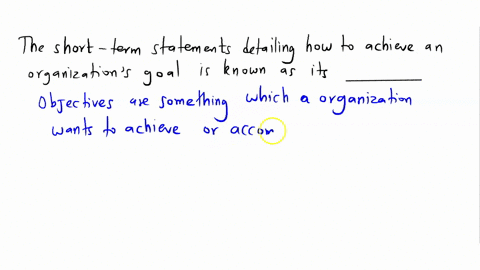 The short-term statements detailing how to achieve an
organization's goal is known as its ________
Objectives are something which a organization
wants to achieve or accom